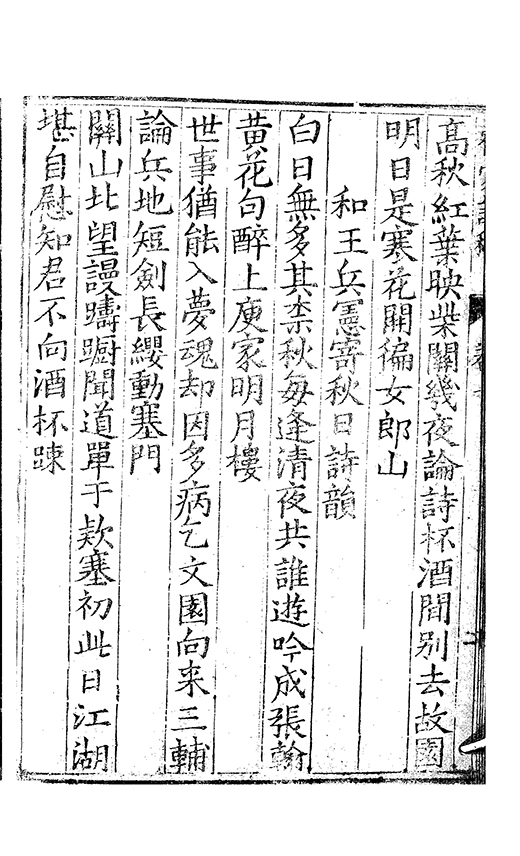 高秋紅葉映柴關幾夜論詩杯酒間别去故園
明日是寒花開徧女郎山
和王兵憲寄秋日詩韻
白日無多其柰秋每逢清夜共誰遊吟成張翰
黄花句醉上庾家明月樓
世事猶能入夢魂却因多病乞文園向来三輔
論兵地短劍長纓動塞門
關山北望謾躊躕聞道單于欵塞初此日江湖
堪自慰知君不向酒杯踈